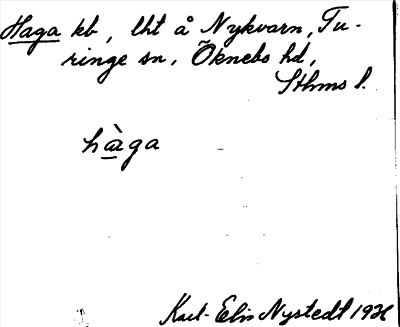 Haga kb, lht å Nykvarn, Tu-
ringe sn, Öknebo hd,
Sthms l.
hàga
Karl-Elis Nystedt 1926